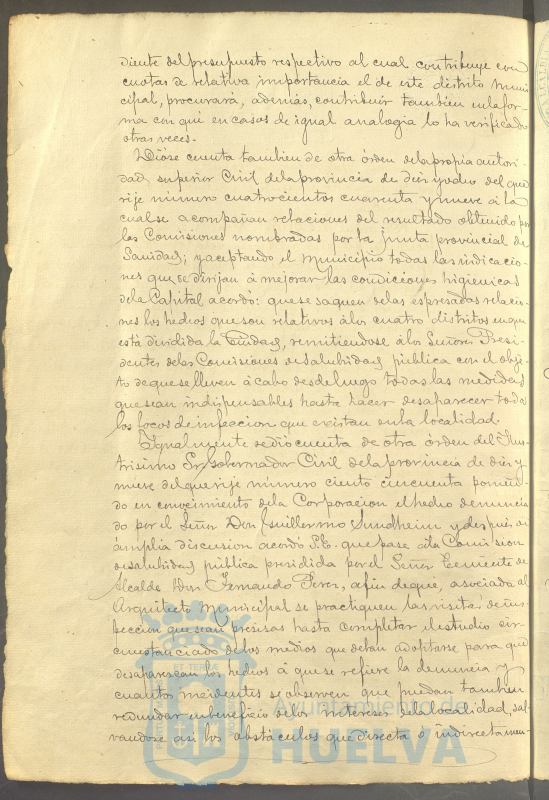 diente del presupuesto respectivo al cual contribuye con
cuotas de relativa importancia el de este distrito muni-
cipal, procurará, ademas, contribuir tambien en la for-
ma con que en casos de igual analogía lo ha verificado
otras veces.
Dióse cuenta tambien de otra órden de la propia autori-
dad superior Civil de la provincia de diez y ocho del que
rije número cuatrocientos cuarenta y nueve á la
cual se acompañan relaciones del resultado obtenido por
las Comisiones nombradas por la junta provincial de
Sanidad; y aceptando el Municipio todas las indicacio-
nes que se dirijan á mejorar las condiciones higienicas
de la Capital acordó: que se saquen de las espresadas relacio-
nes los hechos que son relativos á los cuatro distritos en que
está dividida la Ciudad, remitiendose á los Señores Presi-
dentes de las Comisiones de salubridad pública con el obje-
to de que se lleven á cabo desde luego todas las medidas
que sean indispensables hasta hacer desaparecer todos
los focos de infeccion que existan en la localidad.
Igualmente se dió cuenta de otra órden del Ilus-
trisimo Sr. Gobernador Civil de la provincia de diez y
nueve del que rije número ciento cincuenta ponien-
do en conocimiento de la Corporacion el hecho denuncia-
do por el Señor Don Guillermo Sundheim y despues de
ámplia discusion acordó S.E. que pase á la Comision
de salubridad pública presidida por el Señor Teniente de
Alcalde Don Fernando Perez, a fin de que, asociada al
Arquitecto Municipal se practiquen las visitas de ins-
peccion que sean precisas hasta completar el estudio cir-
cunstanciado de los medios que deban adoptarse para que
desaparezcan los hechos á que se refiere la denuncia y
cuantos incidentes se observen que puedan tambien
redundar en beneficio de los intereses de la localidad, sal-
vandose asi los obstáculos que directa ó indirectamen-
Ayuntamiento de
HUELVA